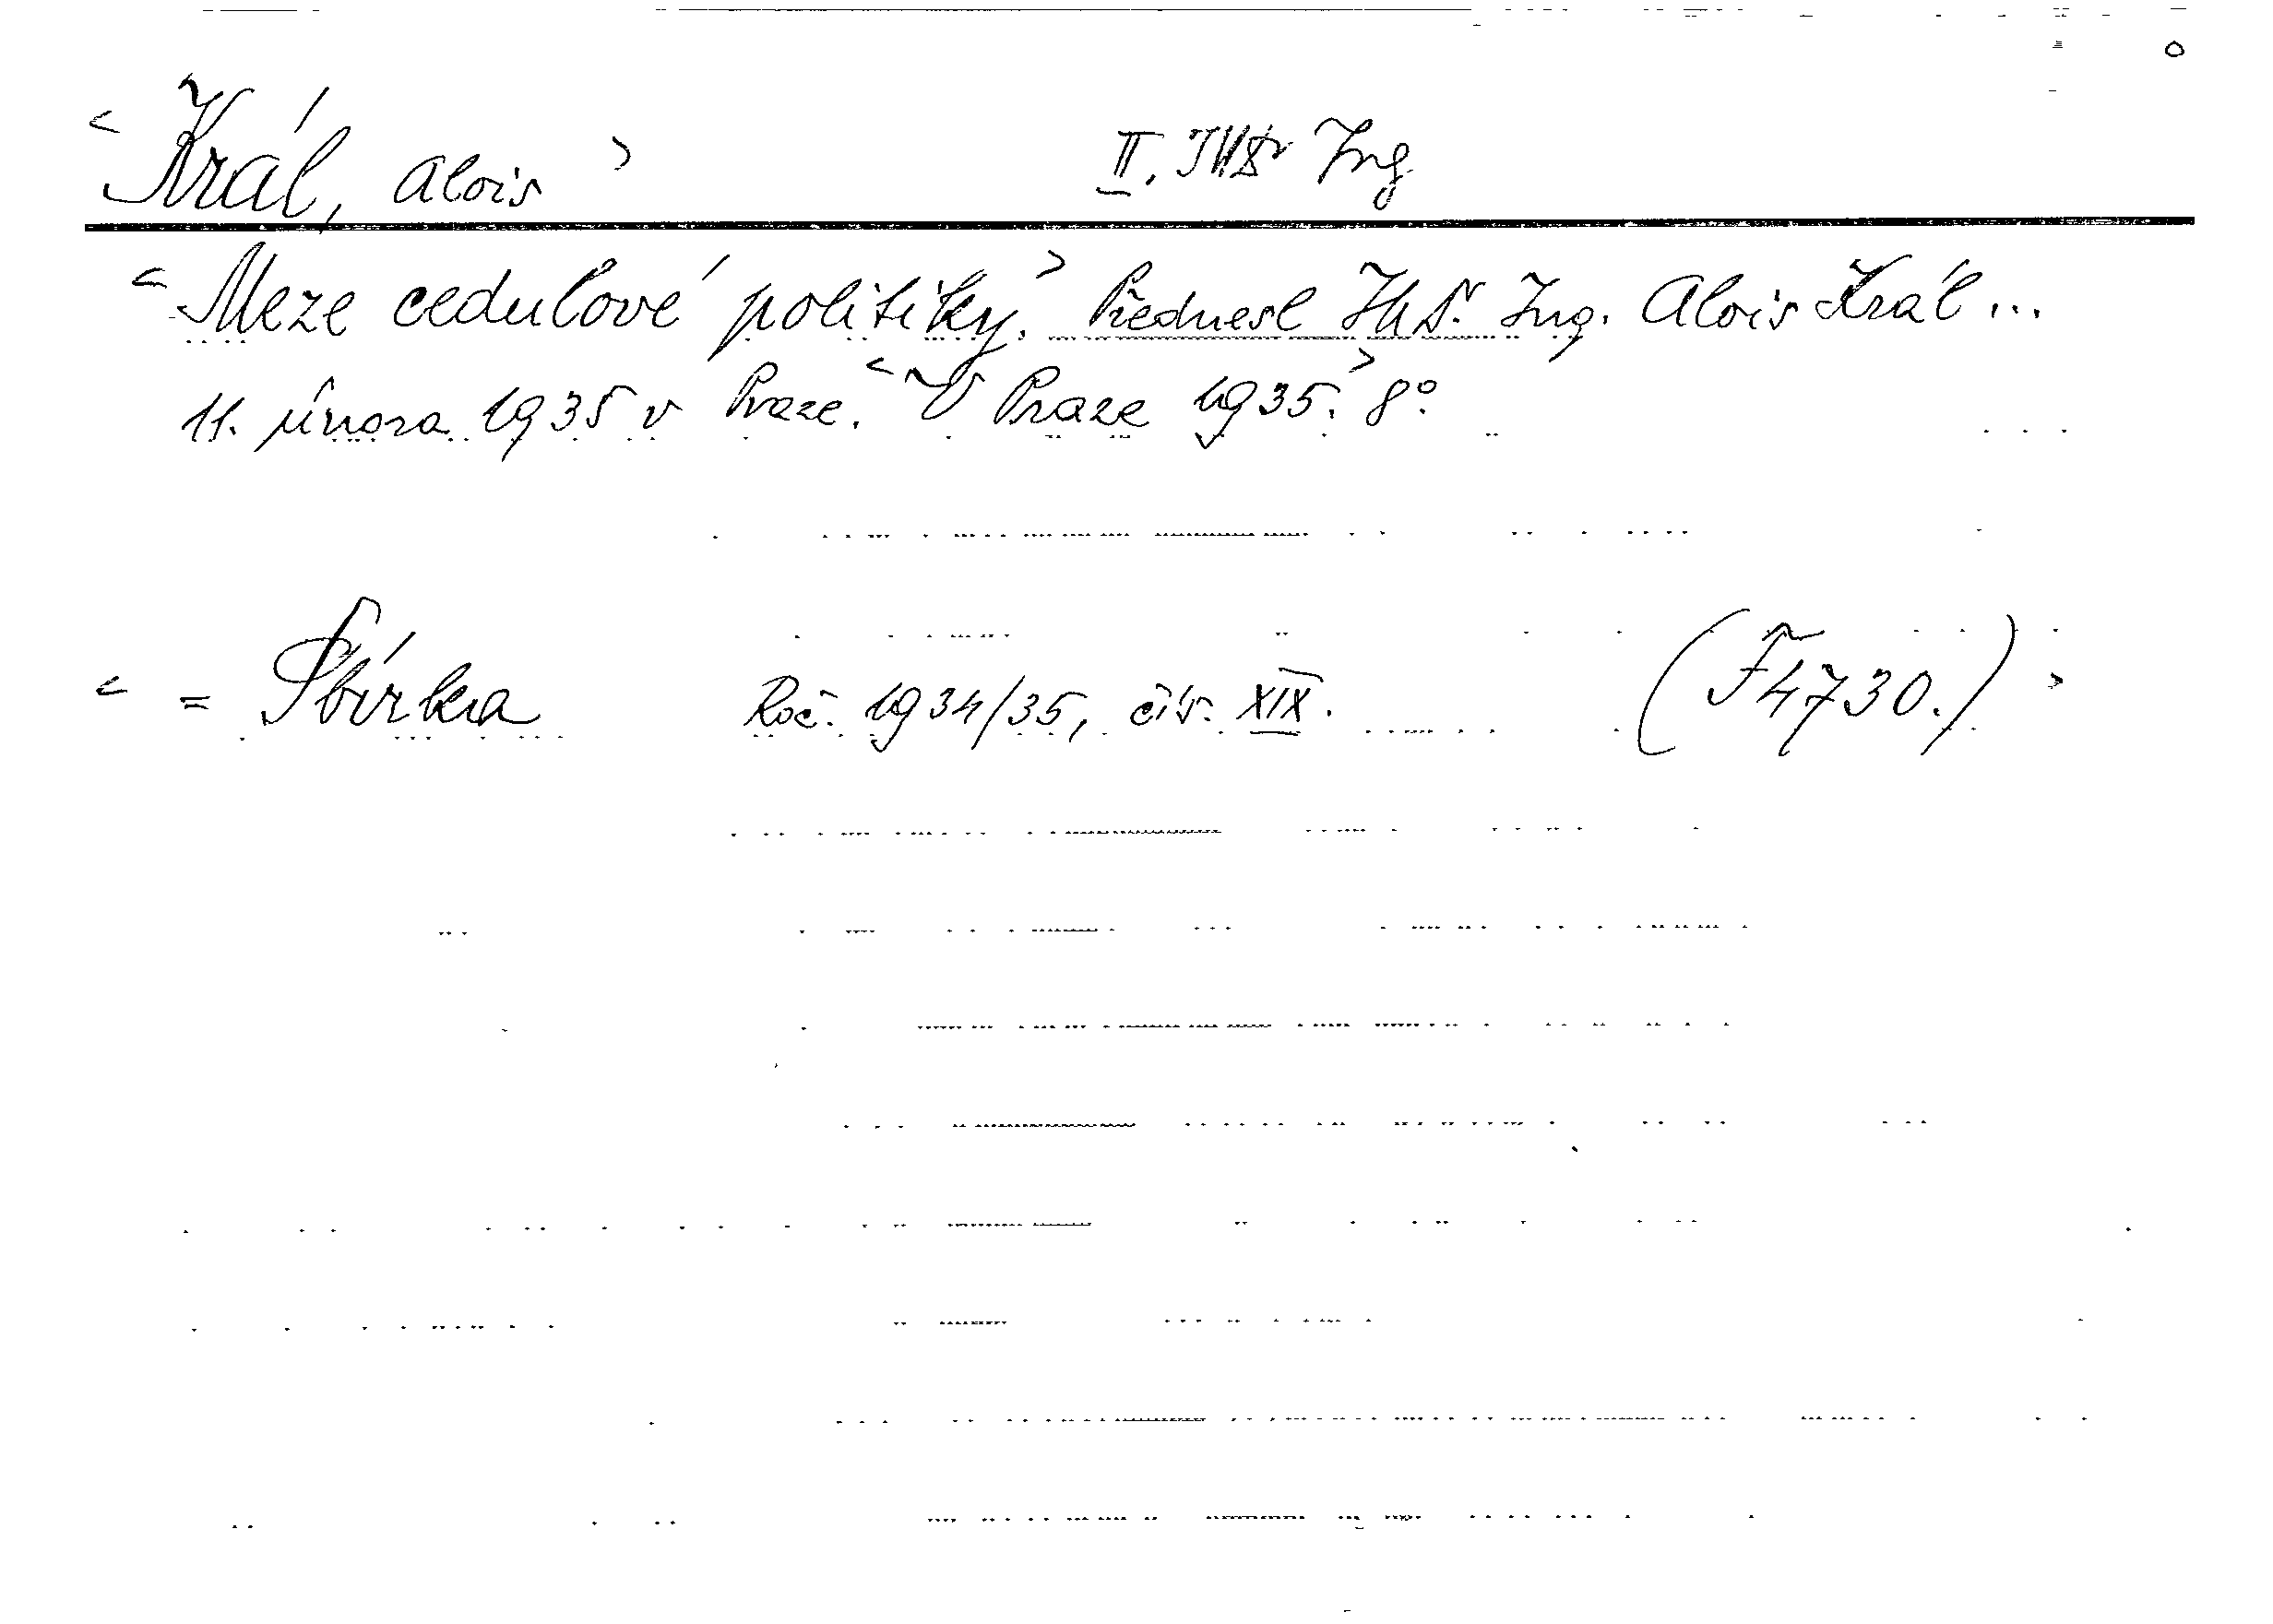 < Král, Alois > II. JUDr Ing.
< Meze cedulové politiky. > Přednesl JUDr. Ing. Alois Král ...
11. února 1935 v Praze. < V Praze 1935. > 8°.
< = Sbírka Roč. 1934/35, čís. XIX. (F 4730.) >